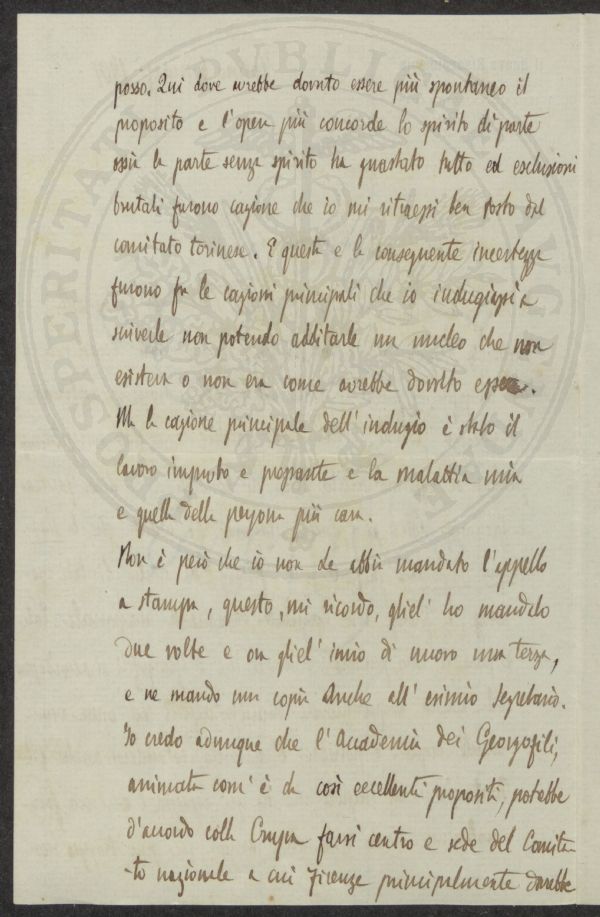 posso. Qui dove avrebbe dovuto essere più spontaneo il
proposito e l'opera più concorde lo spirito di parte
ossia la parte senza spirito ha guastato tutto ed esclusioni
brutali furono cagione che io mi ritraessi ben tosto dal
comitato torinese. E questa e la conseguente incertezza
furono fra le cagioni principali che io indugiassi a
scriverle non potendo additarle un nucleo che non
esisteva o non era come avrebbe dovuto essere.
Ma la cagione principale dell'indugio è stato il
lavoro improbo e pressante e la malattia mia
e quella della persona più cara.
Non è però che io non Le abbia mandato l'appello
a stampa, questo, mi ricordo, gliel' ho mandato
due volte e ora gliel' invio di nuovo una terza,
e ne mando una copia anche all' esimio Segretario.
Io credo adunque che l'Accademia dei Georgofili,
animata com' è da così eccellenti propositi, potrebbe
d'accordo colla Crusca farsi centro e sede del Comita-
-to nazionale a cui Firenze principalmente darebbe
PROSPERITATI PVBLICAE AVG